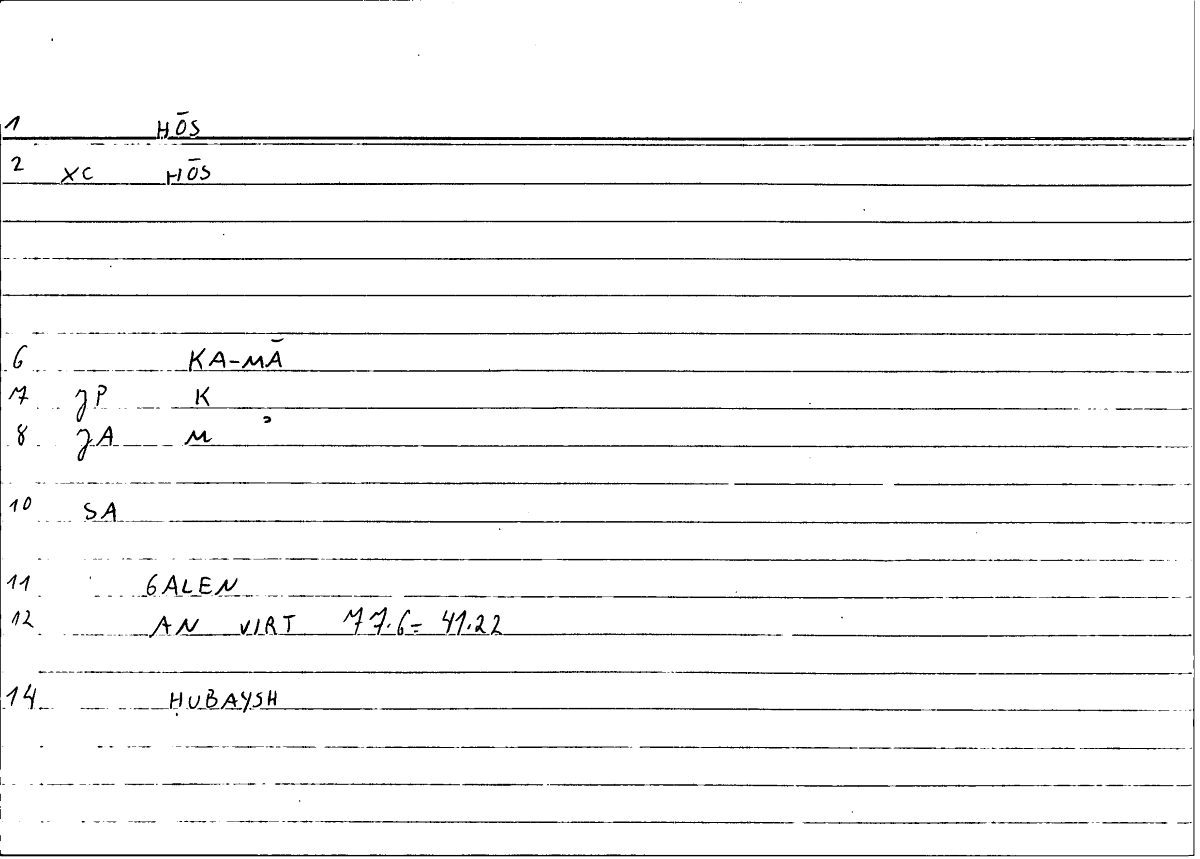 1 HŌS
2 XC HŌS
6 KA-MĀ
7 JP K
8 JA M ʾ
10 SA
11 GALEN
12 AN VIRT 77.6= 41.22
14 ḤUBAYSH